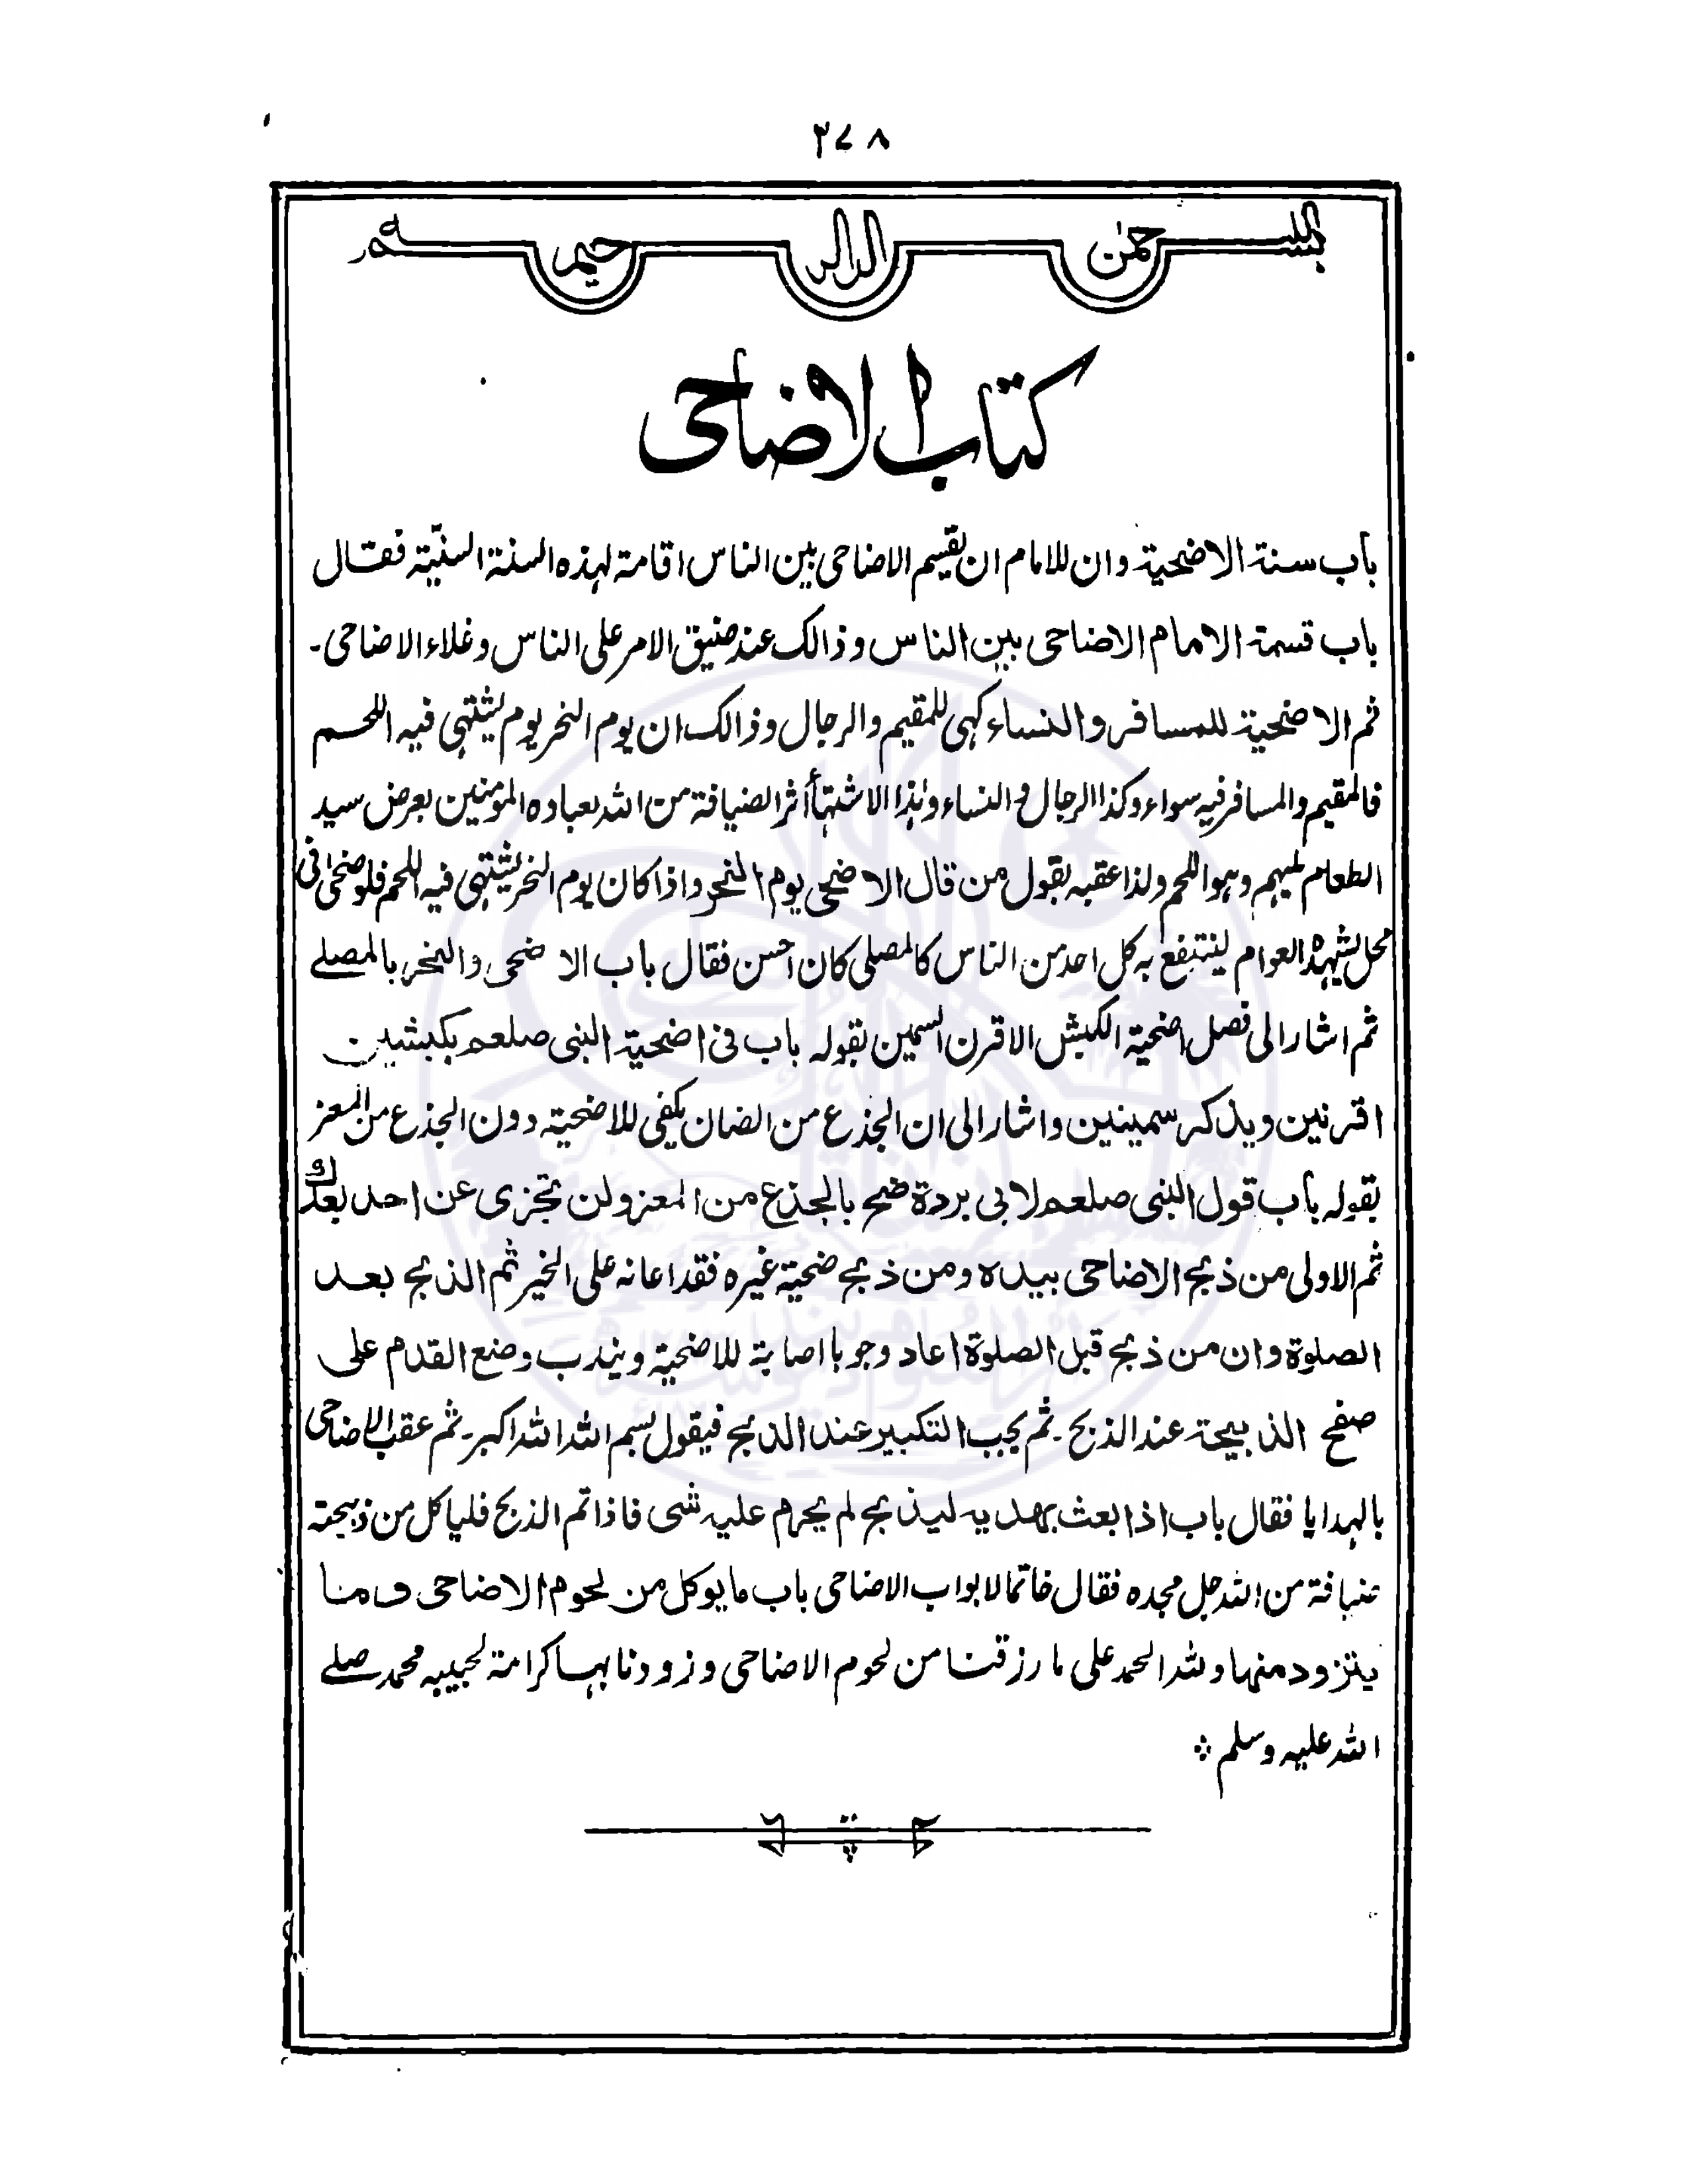 ٣٧٨
بسم الله الرحمن الرحيم
كتاب الاضاحى
باب سنة الاضحية وان للامام ان يقيسم الاضاحى بين الناس اقامة لهذه السنة السنيّة فقال
باب قسمة الامام الاضاحى بين الناس وذالك عند ضيق الامر على الناس وغلاء الاضاحى۔
ثم الاضحية للمسافر والنساء كهى للمقيم والرجال وذالك ان يوم النحر يوم يشتهى فيه اللحم
فالمقيم والمسافر فيه سواء وكذا الرجال والنساء وهذا الاشتهأ أثر الضيافة من الله بعباده المومنين بعرض سيد
الطعام لميهم وهو اللحم ولذا عقبه بقول من قال الاضحى يوم النحر واذا كان يوم النحر يشتهى فيه اللحم فلو ضحىٰ فى
محل يشهده العوام لينتفع به كل احد من الناس كالمصلى كان احسن فقال باب الاضحى والنحر بالمصلے
ثم اشار الى فصل اضحية الكبش الاقرن السمين بقوله باب فى اضحية النبى صلعم بكبشين
اقرنين ويذكر سمينين واشار الى ان الجذع من الضان يكفى للاضحية دون الجذع من المعز
بقوله باب قول النبى صلعم لابى بردة ضح بالجذع من المعز ولن تجزى عن احد بعدك و
ثم الاولى من ذبح الاضاحى بيده ومن ذبح ضحية غيره فقد اعانه على الخير ثم الذبح بعد
الصلوة وان من ذبح قبل الصلوة اعاد وجوبا اصابة للاضحية ويندب وضع القدم على
صفح الذبيحة عند الذبح ۔ ثم يجب التكبير عند الذبح فيقول بسم الله الله اكبر۔ ثم عقب الاضاحى
بالهدايا فقال باب اذا بعث بهديه ليذبح لم يحرم عليه شى فاذا تم الذبح فلياكل من ذبيحته
ضيافة من الله جل مجده فقال خاتما لابواب الاضاحى باب ما يوكل من لحوم الاضاحى وما
يتزود منها ولله الحمد على ما رزقنا من لحوم الاضاحى وزودنا بها كرامة لحبيبه محمد صلے
الله عليه وسلم